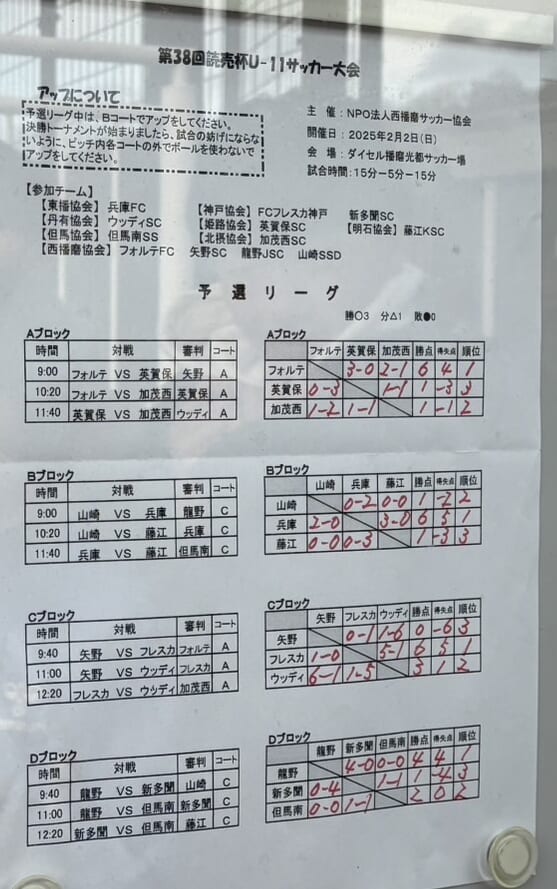 第38回読売杯U-11サッカー大会
アップについて
予選リーグ中は、Bコートでアップをしてください。
決勝トーナメントが始まりましたら、試合の妨げにならな
いように、ピッチ内各コートの外でボールを使わないで
アップをしてください。
主 催 : NPO法人西播磨サッカー協会
開催日 : 2025年2月2日(日)
会 場 : ダイセル播磨光都サッカー場
試合時間 : 15分ー5分ー15分
【参加チーム】
【東播協会】 兵庫FC 【神戸協会】 FCフレスカ神戸 新多聞SC
【丹有協会】 ウッディSC 【姫路協会】 英賀保SC 【明石協会】 藤江KSC
【但馬協会】 但馬南SS 【北摂協会】 加茂西SC
【西播磨協会】 フォルテFC 矢野SC 龍野JSC 山崎SSD
予 選 リ ー グ
勝○3 分△1 敗●0
Aブロック
時間 対戦 審判 コート
9:00 フォルテ VS 英賀保 矢野 A
10:20 フォルテ VS 加茂西 英賀保 A
11:40 英賀保 VS 加茂西 ウッディ A
Aブロック
フォルテ 英賀保 加茂西 勝点 得失点 順位
フォルテ 3-0 2-1 6 4 1
英賀保 0-3 1-1 1 -3 3
加茂西 1-2 1-1 1 -1 2
Bブロック
時間 対戦 審判 コート
9:00 山崎 VS 兵庫 龍野 C
10:20 山崎 VS 藤江 兵庫 C
11:40 兵庫 VS 藤江 但馬南 C
Bブロック
山崎 兵庫 藤江 勝点 得失点 順位
山崎 0-2 0-0 1 -2 2
兵庫 2-0 3-0 6 5 1
藤江 0-0 0-3 1 -3 3
Cブロック
時間 対戦 審判 コート
9:40 矢野 VS フレスカ フォルテ A
11:00 矢野 VS ウッディ フレスカ A
12:20 フレスカ VS ウッディ 加茂西 A
Cブロック
矢野 フレスカ ウッディ 勝点 得失点 順位
矢野 0-1 1-6 0 -6 3
フレスカ 1-0 5-1 6 5 1
ウッディ 6-1 1-5 3 1 2
Dブロック
時間 対戦 審判 コート
9:40 龍野 VS 新多聞 山崎 C
11:00 龍野 VS 但馬南 新多聞 C
12:20 新多聞 VS 但馬南 藤江 C
Dブロック
龍野 新多聞 但馬南 勝点 得失点 順位
龍野 4-0 0-0 4 4 1
新多聞 0-4 1-1 1 -4 3
但馬南 0-0 1-1 2 0 2